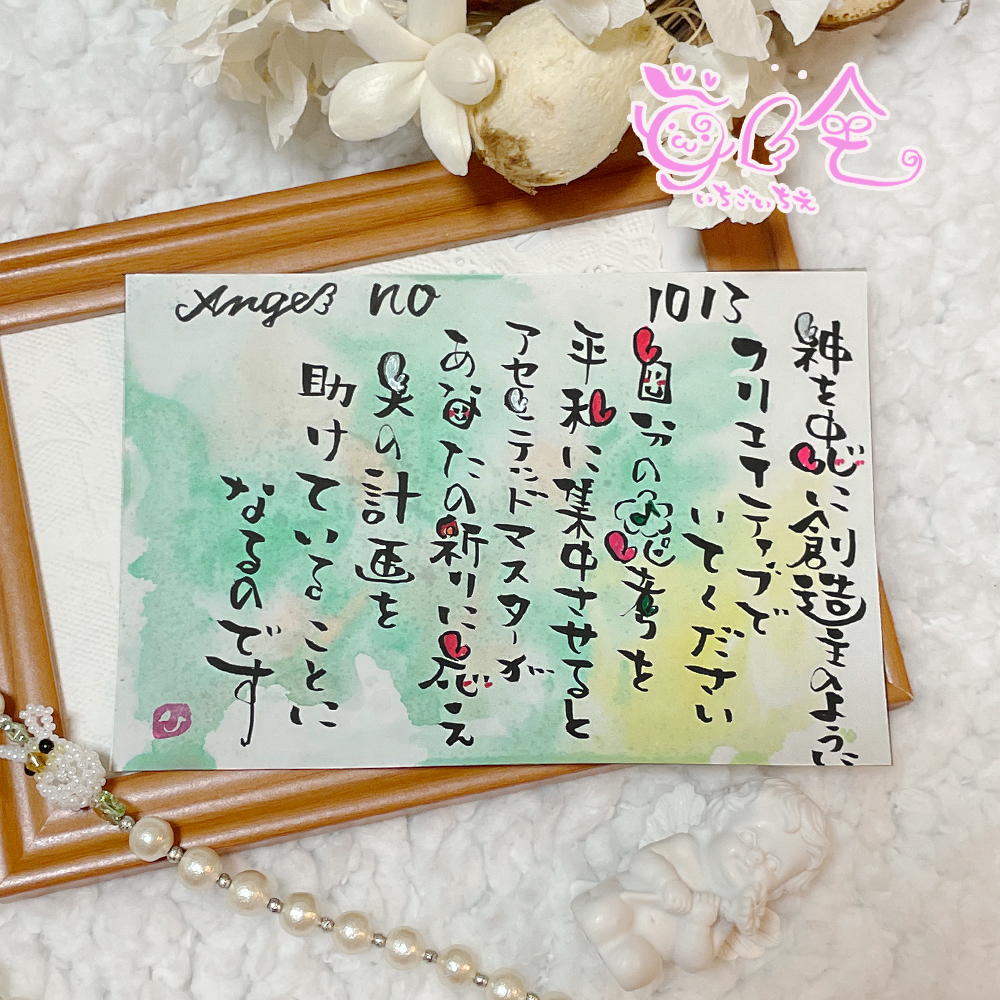 いちごいちえ
Angel no 1013
神を中心に創造主のように
クリエイティブで
いてください
自分の思考を
平和に集中させると
アセンデッドマスターが
あなたの祈りに応え
異の計画を
助けていることに
なるのです